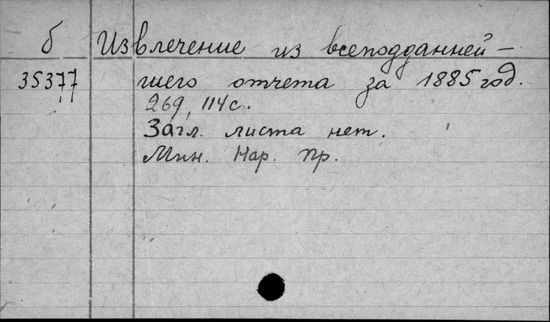 б Извлечение из всеподданней-
35377 шего отчета за 1885 год.
269, 114 с.
Загл. листа нет.
Мин. Нар. Пр.